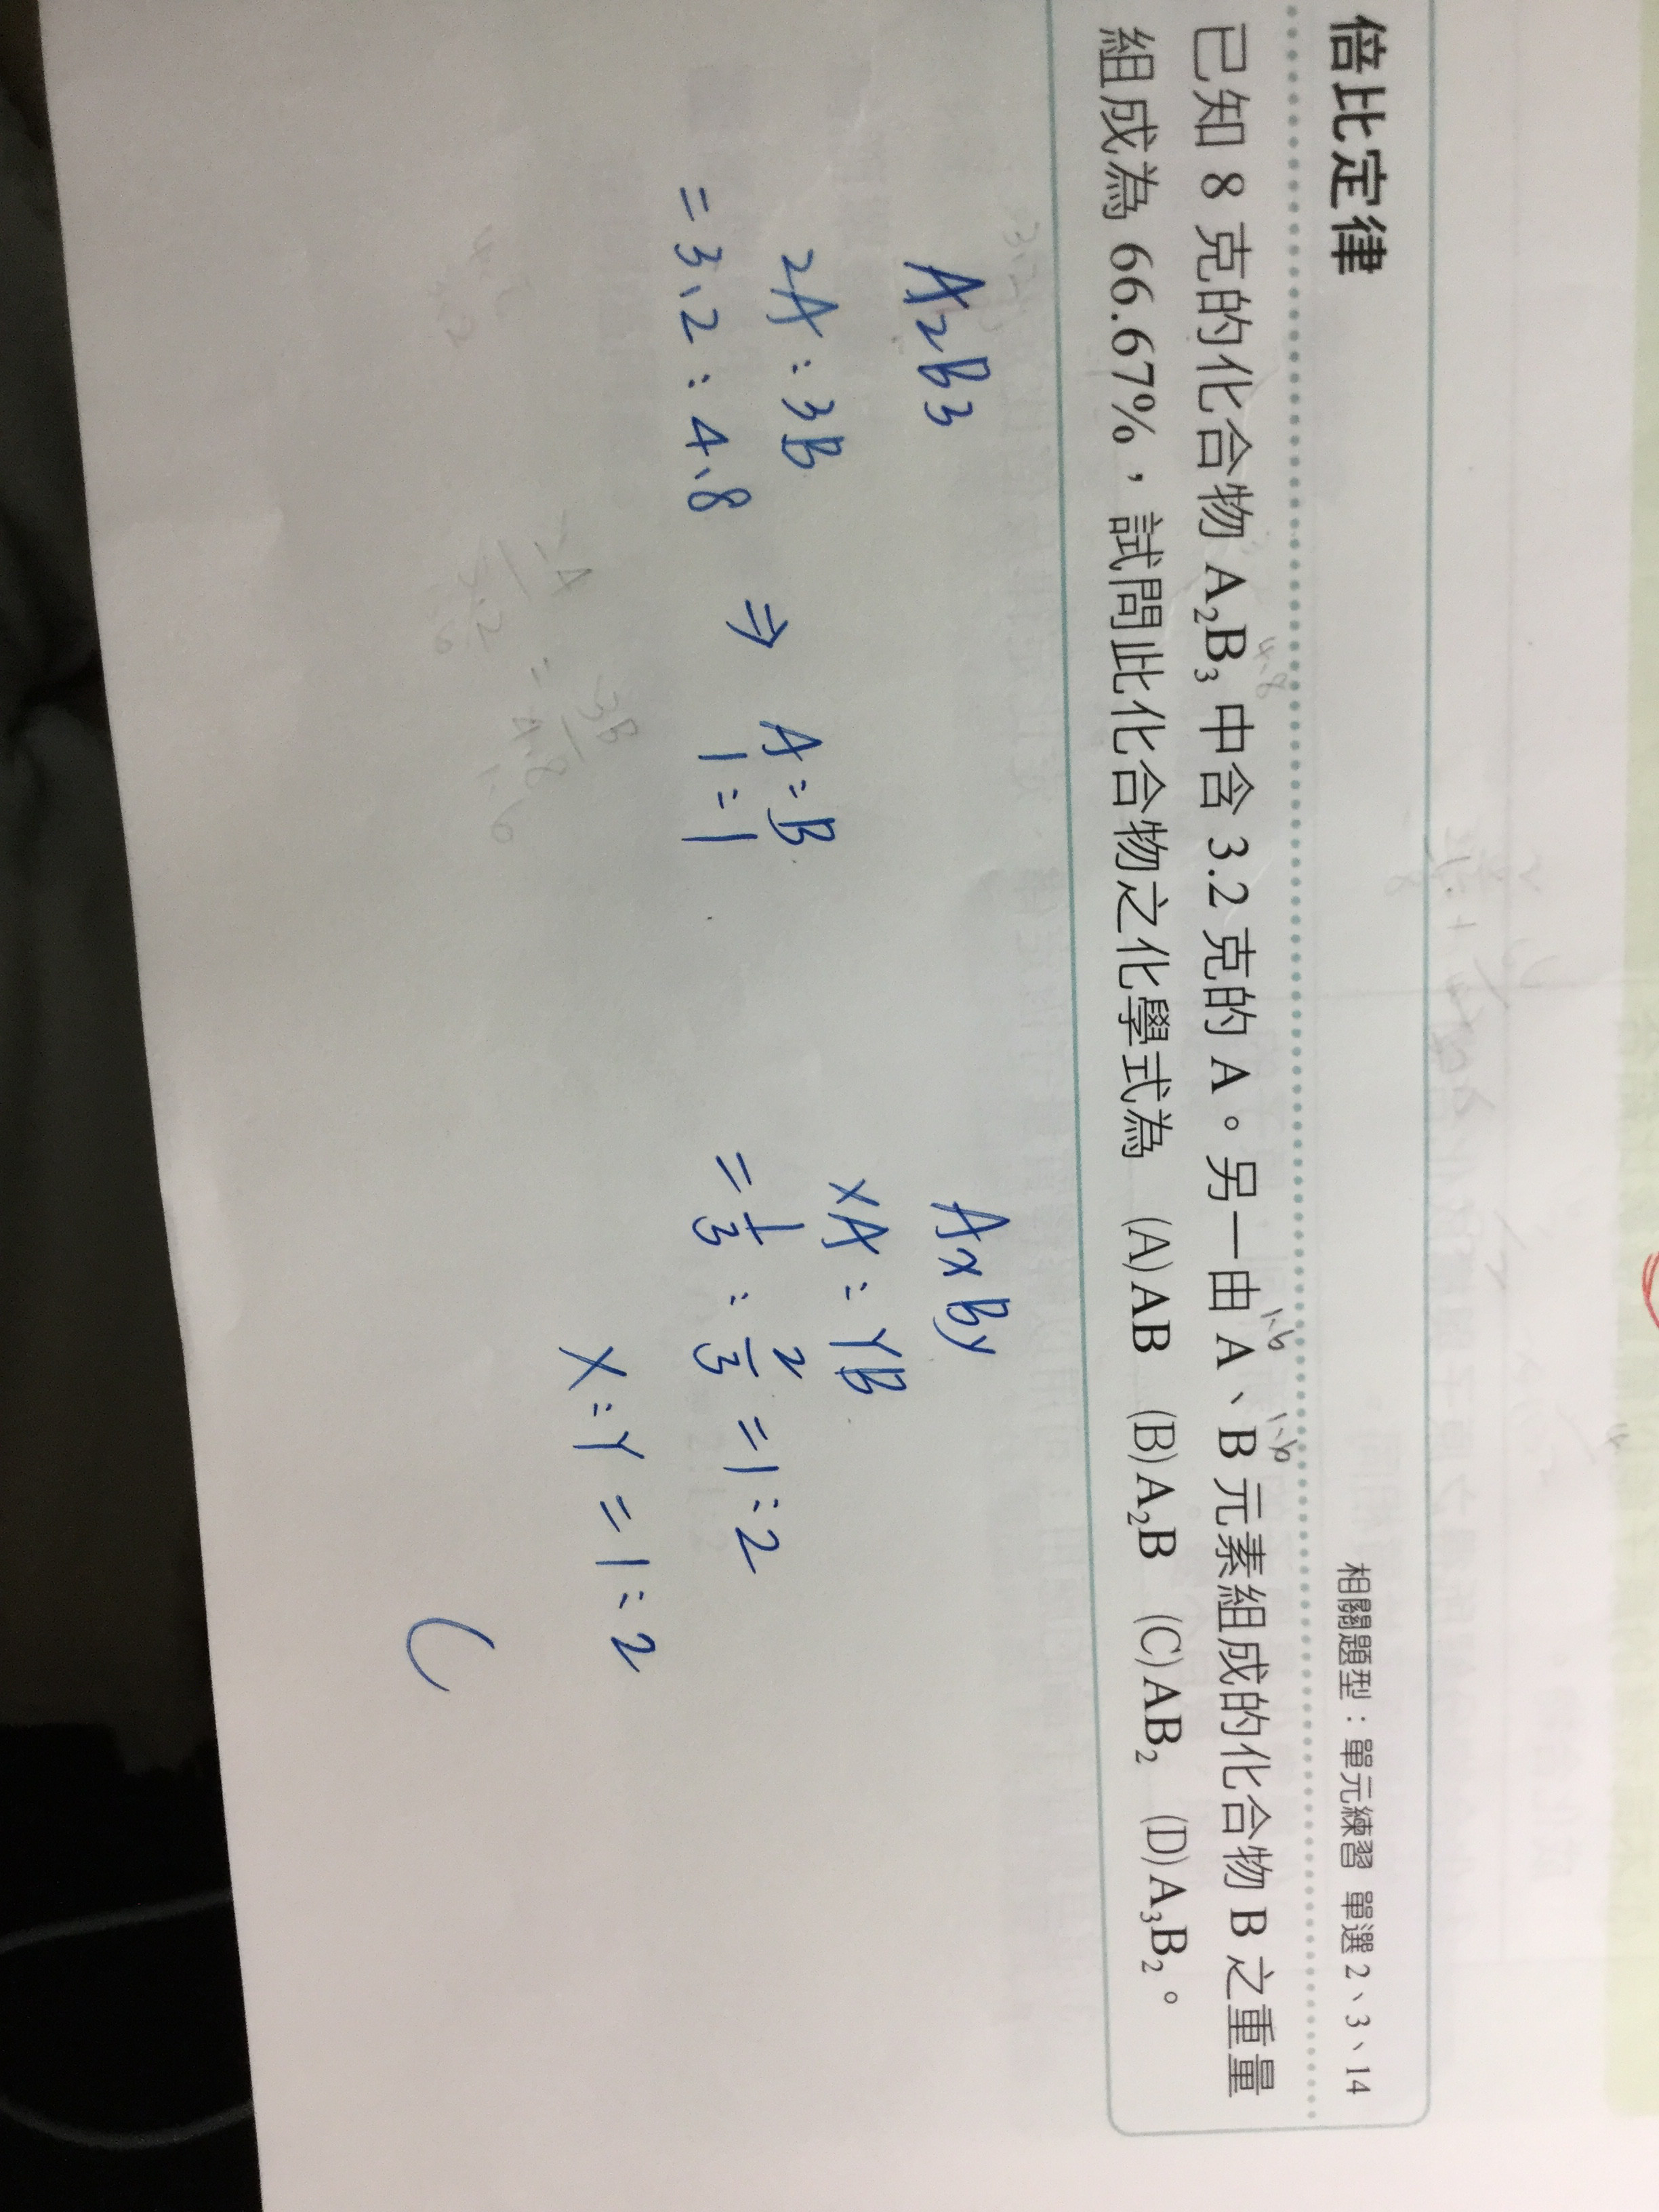 倍比定律
相關題型：單元練習 單選 2、3、14
已知 8 克的化合物 A₂B₃ 中含 3.2 克的 A。另一由 A、B 元素組成的化合物 B 之重量
組成為 66.67%，試問此化合物之化學式為 (A) AB (B) A₂B (C) AB₂ (D) A₃B₂。
4.8
1.6 1.6
A₂B₃
2A : 3B
= 3.2 : 4.8 ⇒ A : B
1 : 1
AxBy
XA : YB
= 1/3 : 2/3 = 1 : 2
X : Y = 1 : 2
C
3B
4.8